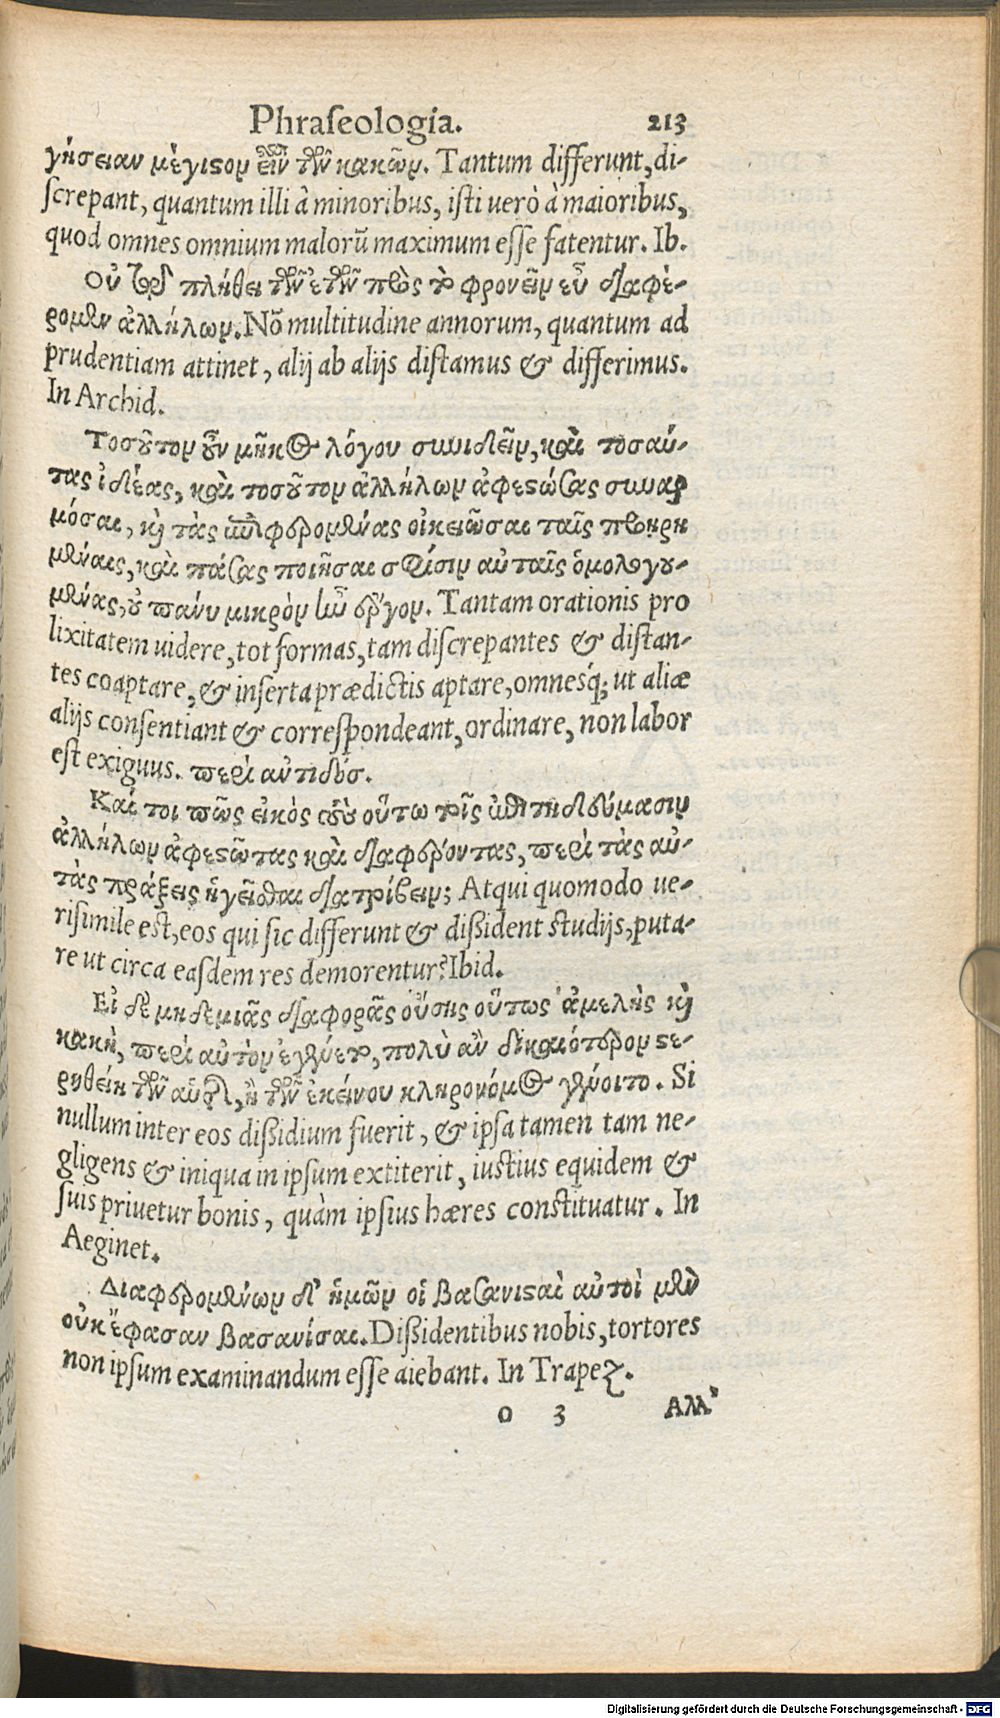 Phraſeologia. 213
γήσειαν μέγιϛον εἶναι τῶν κακῶν. Tantum differunt, di-
ſcrepant, quantum illi à minoribus, iſti uerò à maioribus,
quod omnes omnium malorũ maximum eſſe fatentur. Ib.
Οὐ γὰρ πλήθει τῶν ἐτῶν πρὸς τὸ φρονεῖν εὖ διαφέ-
ρομεν ἀλλήλων. Nõ multitudine annorum, quantum ad
prudentiam attinet, alij ab alijs diſtamus & differimus.
In Archid.
Τοσοῦτον οὖν μῆκος λόγου συνιδεῖν, καὶ τοσαύ-
τας ἰδέας, καὶ τοσοῦτον ἀλλήλων ἀφεϛώσας συναρ
μόσαι, καὶ τὰς ἐπιφερομένας οἰκειῶσαι ταῖς προειρη
μέναις, καὶ πάσας ποιῆσαι σφίσιν αὐταῖς ὁμολογου-
μένας, οὐ πάνυ μικρὸν ἦν ἔργον. Tantam orationis pro
lixitatem uidere, tot formas, tam diſcrepantes & diſtan-
tes coaptare, & inſerta prædictis aptare, omnesq́; ut aliæ
alijs conſentiant & correſpondeant, ordinare, non labor
eſt exiguus. περὶ αὐτιδόσ.
Καί τοι πῶς εἰκός ἐϛιν οὕτω τοῖς ἐπιτηδεύμασιν
ἀλλήλων ἀφεϛῶτας καὶ διαφέροντας, περὶ τὰς αὐ-
τὰς πράξεις ἡγεῖσθαι διατρίβειν; Atqui quomodo ue-
riſimile eſt, eos qui ſic differunt & dißident ſtudijs, puta-
re ut circa eaſdem res demorentur? Ibid.
Εἰ δὲ μηδεμιᾶς διαφορᾶς οὔσης οὕτως ἀμελὴς καὶ
κακὴ, περὶ αὐτὸν ἐγένετο, πολὺ ἂν δικαιότερον ϛε-
ρηθείη τῶν αὑτοῦ, ἢ τῶν ἐκείνου κληρονόμος γένοιτο. Si
nullum inter eos dißidium fuerit, & ipſa tamen tam ne-
gligens & iniqua in ipſum extiterit, iuſtius equidem &
ſuis priuetur bonis, quàm ipſius hæres conſtituatur. In
Aeginet.
Διαφερομένων δ' ἡμῶν οἱ βασανιϛαὶ αὐτοὶ μὲν
οὐκ ἔφασαν βασανίσαι. Dißidentibus nobis, tortores
non ipſum examinandum eſſe aiebant. In Trapez.
o 3 Αλλ'
Digitalisierung gefördert durch die Deutsche Forschungsgemeinschaft - DFG